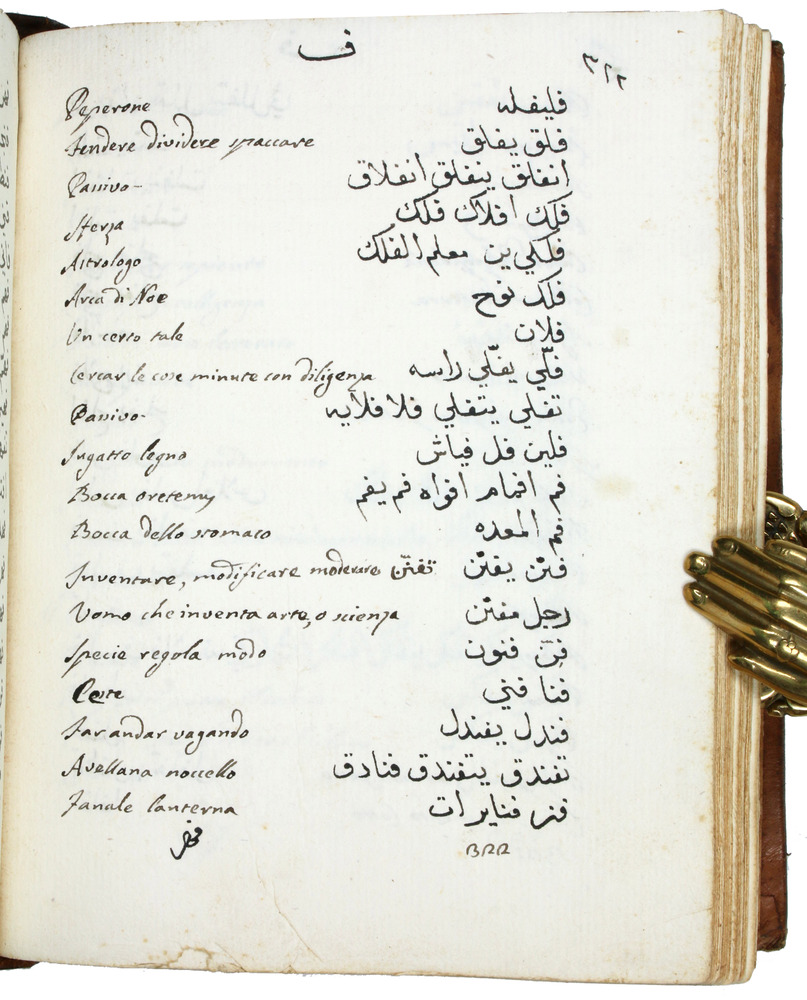 ف
٣٢٢
Peperone فليفله
Fendere dividere spaccare فلق يفلق
Passivo- انفلق ينفلق انفلاق
Sterza فلك افلاك فلك
Astrologo فلكي ين معلم الفلك
Arca di Noe فلك نوح
Un certo tale فلان
Cercar le cose minute con diligenza فلّي يفلّي راسه
Passivo- تفلي يتفلي فلا فلايه
Sugatto legno فلين فل فياش
Bocca فم افمام افواه فم يفم
Bocca dello stomaco فم المعده
Inventare, modificare moderare تفنّن فنّن يفنّن
Uomo che inventa arte, o scienza رجل مفنّن
Specie regola modo فنّ فنون
فنا فني
Far andar vagando فندل يفندل
Avellana noccello تفندق يتفندق فنادق
Fanale lanterna فنر فنايرات
322